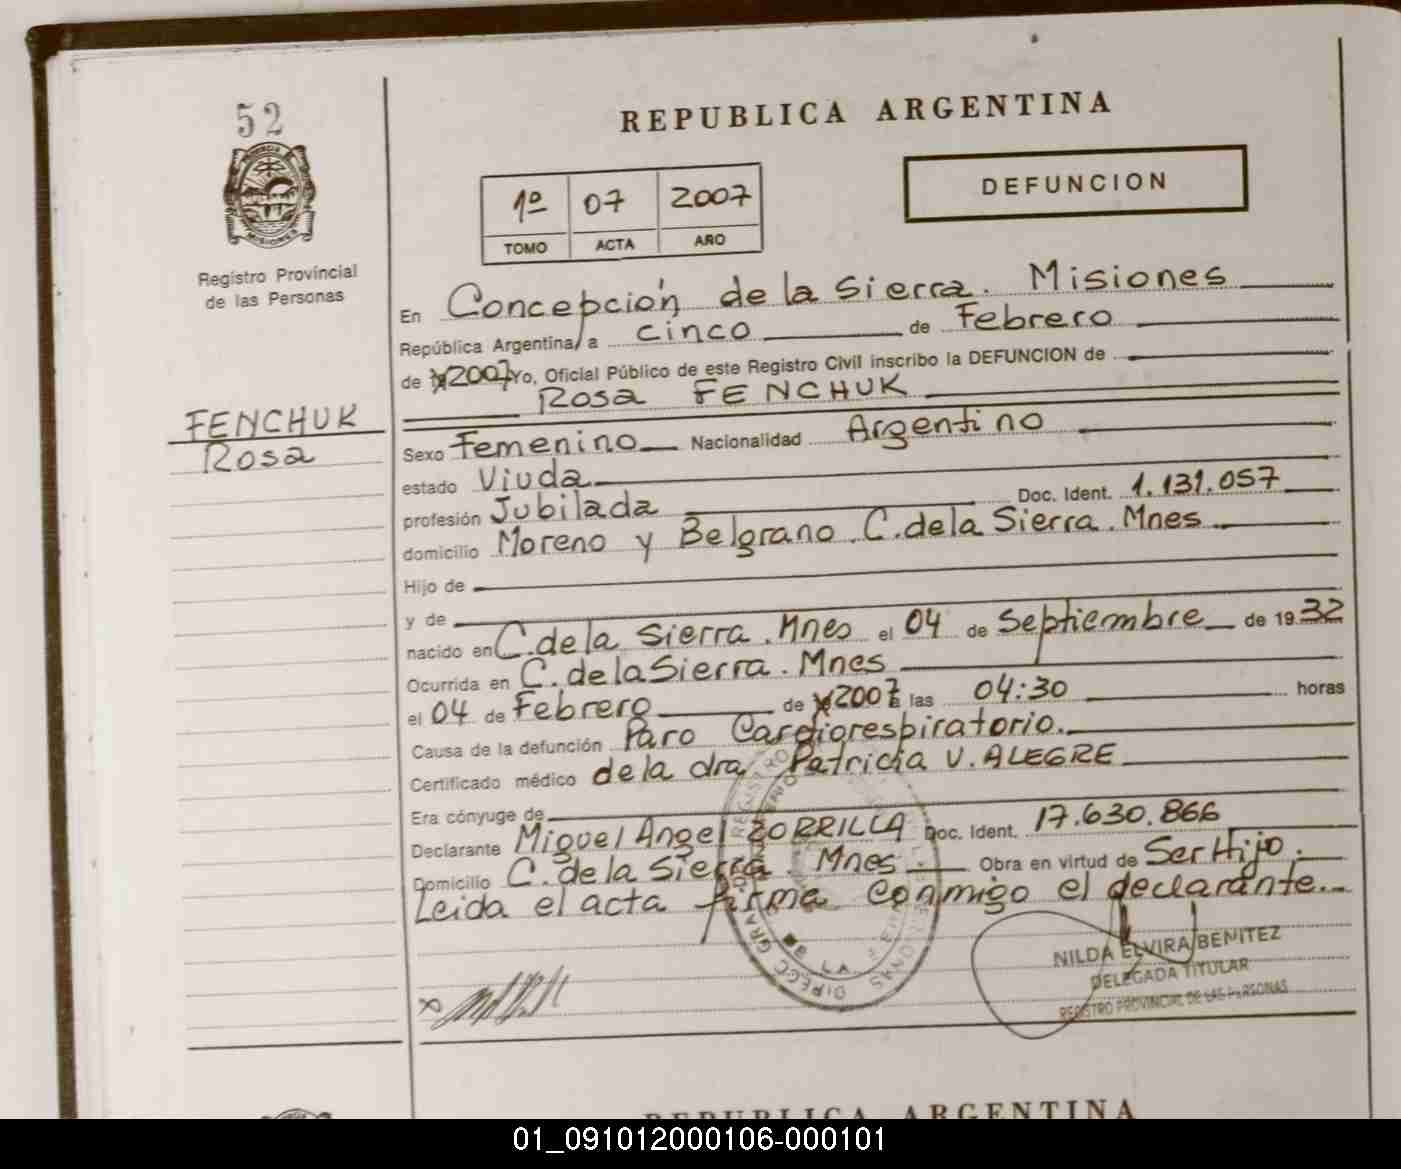 52
Registro Provincial
de las Personas
FENCHUK
Rosa
REPUBLICA ARGENTINA
1º 07 2007
TOMO ACTA AÑO
DEFUNCION
En Concepción de la Sierra. Misiones
República Argentina, a cinco de Febrero
de 2007 Yo, Oficial Público de este Registro Civil inscribo la DEFUNCION de
Rosa FENCHUK
Sexo Femenino Nacionalidad Argentino
estado Viuda
profesión Jubilada Doc. Ident. 1.131.057
domicilio Moreno y Belgrano. C. de la Sierra. Mnes
Hijo de
y de
nacido en C. de la Sierra. Mnes el 04 de Septiembre de 1932
Ocurrida en C. de la Sierra. Mnes
el 04 de Febrero de 2007 a las 04:30 horas
Causa de la defunción Paro Cardiorespiratorio.
Certificado médico de la dra Patricia V. ALEGRE
Era cónyuge de
Declarante Miguel Angel ZORRILLA Doc. Ident. 17.630.866
Domicilio C. de la Sierra. Mnes Obra en virtud de Ser Hijo.
Leida el acta firma conmigo el declarante.
NILDA ELVIRA BENITEZ
DELEGADA TITULAR
REGISTRO PROVINCIAL DE LAS PERSONAS
REPUBLICA ARGENTINA
01_091012000106-000101